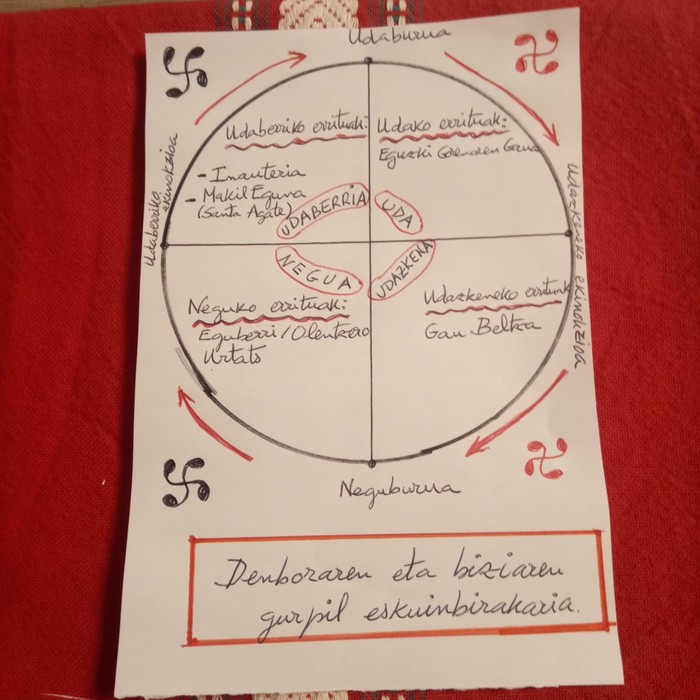 Udaburua
Udaberriko ekinokzioa
Udaberriko errituak:
- Inauteria
- Makil Eguna
(Santa Agate)
UDABERRIA
Udako errituak:
Eguzki Gorenaren Gaua
UDA
Udazkeneko ekinokzioa
NEGUA
Neguko errituak:
Eguberri/Olentzero
Urtats
UDAZKENA
Udazkeneko errituak
Gau Beltza
Neguburua
Denboraren eta biziaren
gurpil eskuinbirakaria.